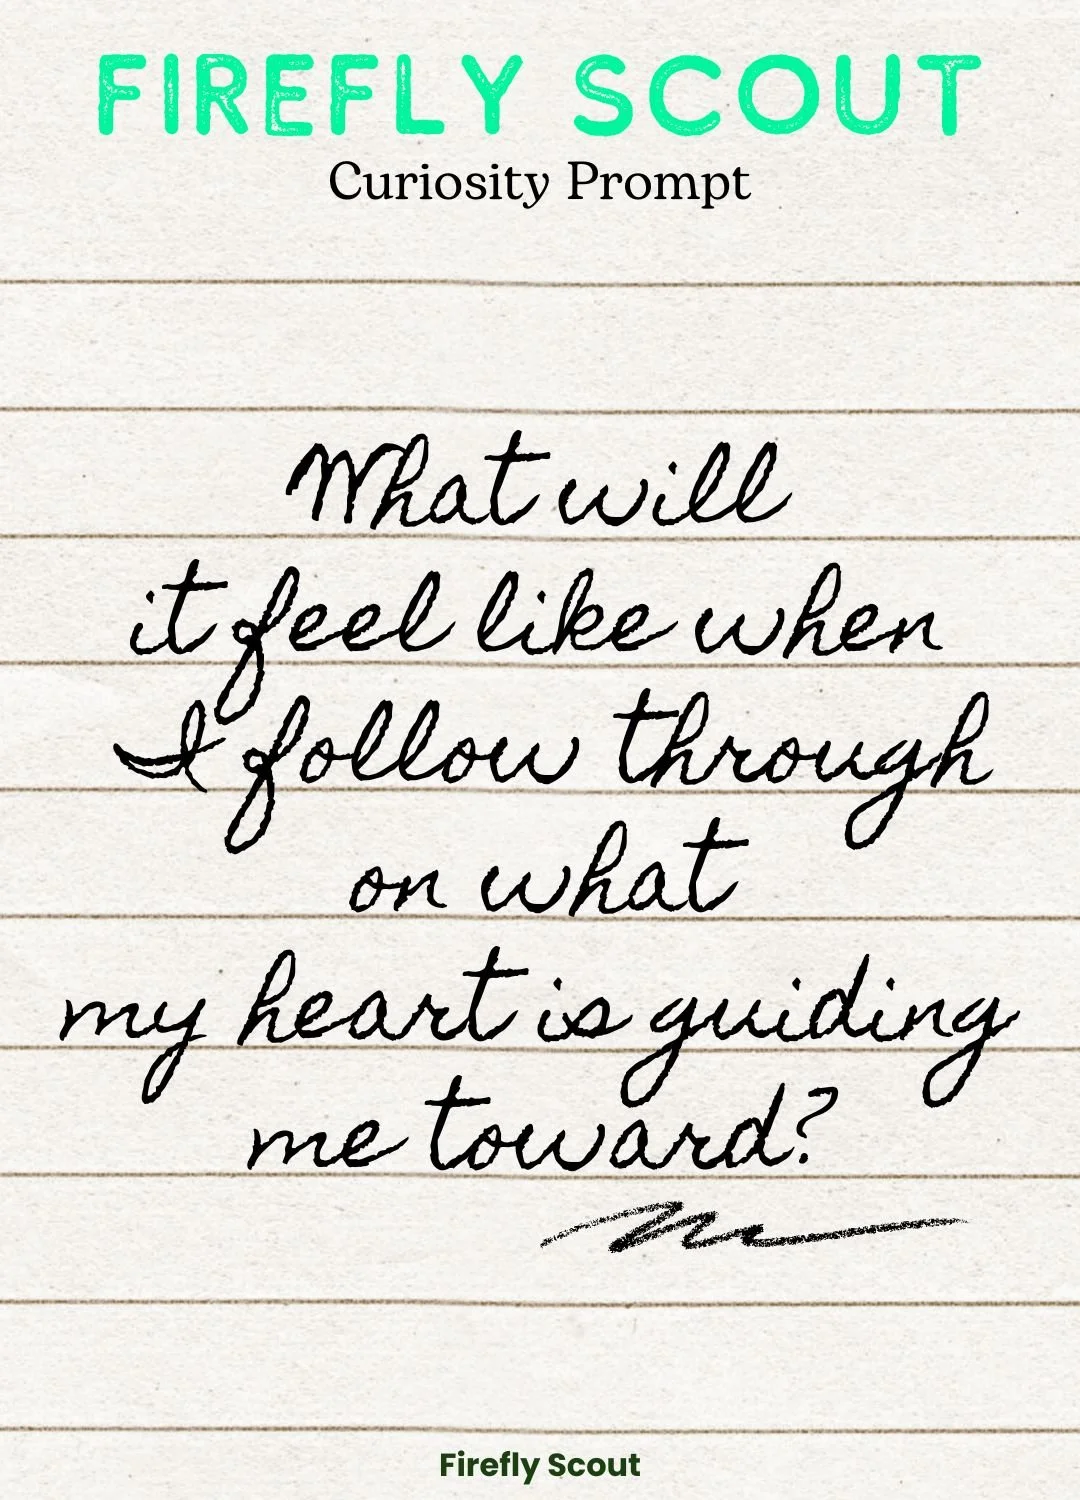 FIREFLY SCOUT
Curiosity Prompt
What will
it feel like when
I follow through
on what
my heart is guiding
me toward?
Firefly Scout